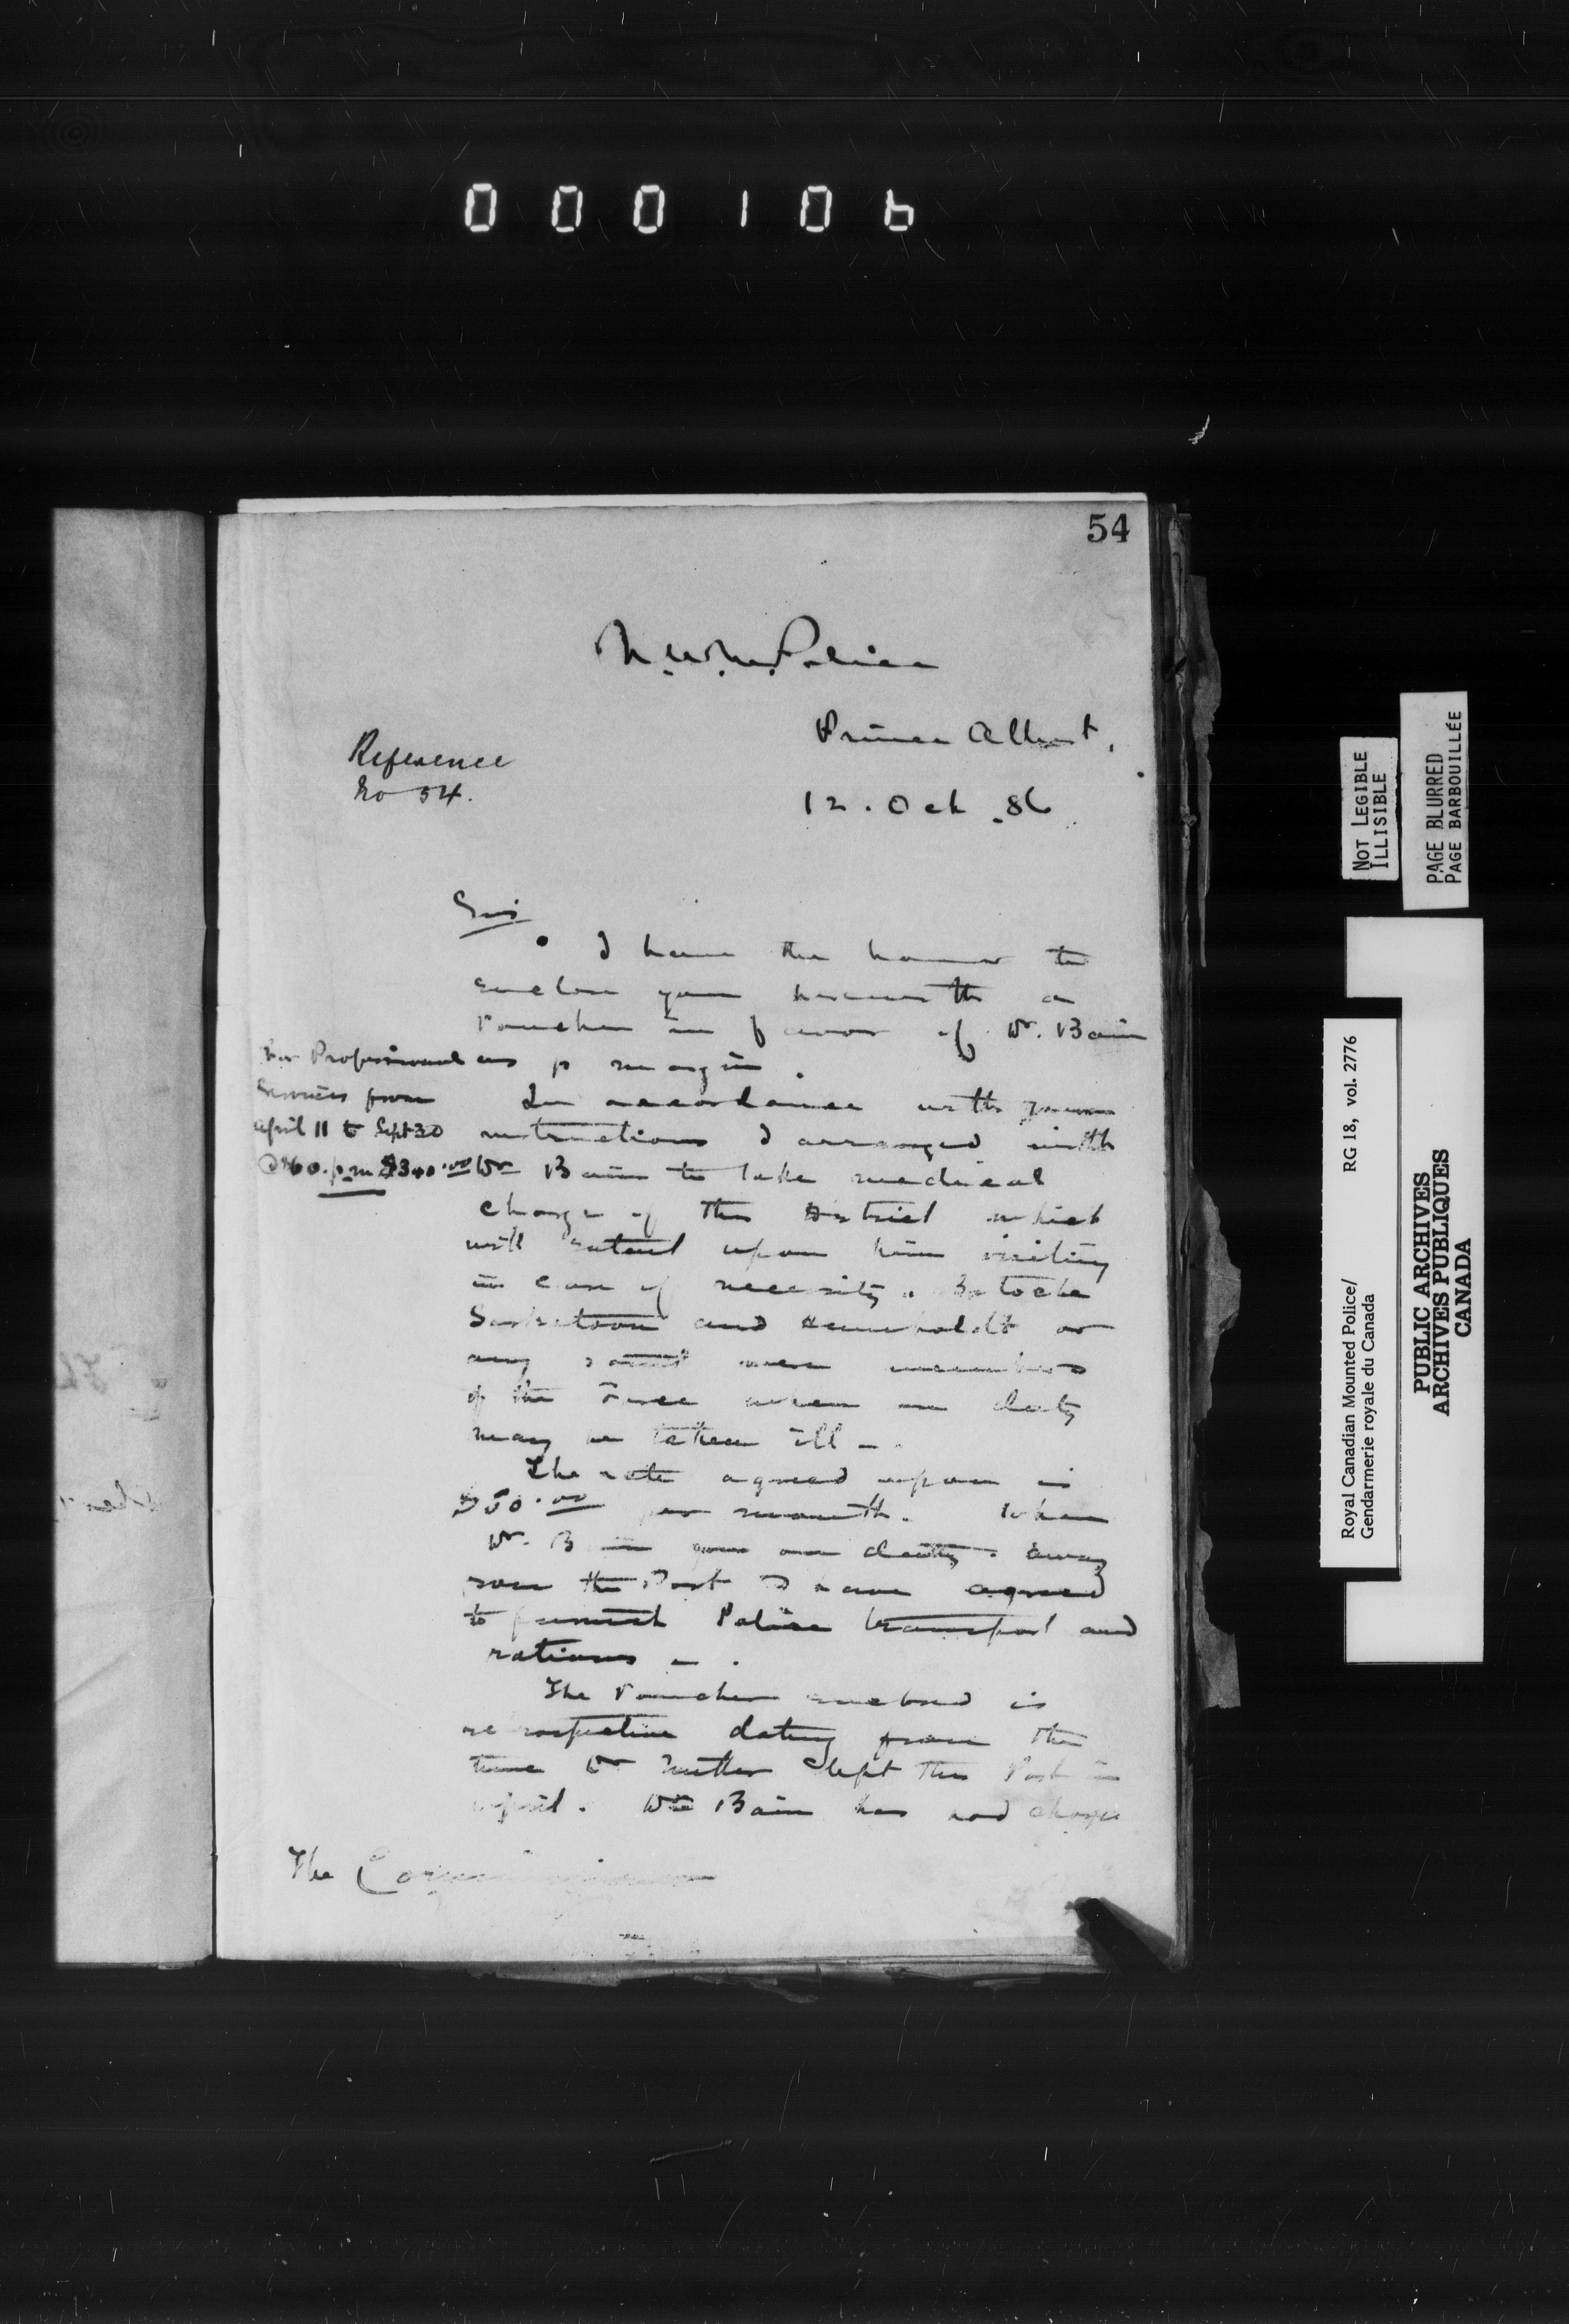 000106
54
N.W.M. Police
Prince Albert,
12. Oct. 86
Reference
No 54.
Sir
I have the honor to
enclose you herewith a
voucher in favor of Dr. Bain
as p margin.
For Professional
Services from
April 11 to Sept 30
@ $60. p. m $340.00
In accordance with your
instructions I arranged with
Dr Bain to take medical
charge of this District which
will entail upon him visiting
in case of necessity. Batoche
Saskatoon and Humboldt or
any point were members
of the Force when on duty
may be taken ill -
The rate agreed upon is
$50.00 per month. When
Dr. Bain goes on duty away
from the Post I have agreed
to furnish Police transport and
rations -.
The Voucher enclosed is
retrospective dating from the
time Dr Miller left this Post in
April. Dr Bain has had charge
The Commissioner
NOT LEGIBLE
ILLISIBLE
PAGE BLURRED
PAGE BARBOUILLÉE
Royal Canadian Mounted Police/ RG 18, vol. 2776
Gendarmerie royale du Canada
PUBLIC ARCHIVES
ARCHIVES PUBLIQUES
CANADA